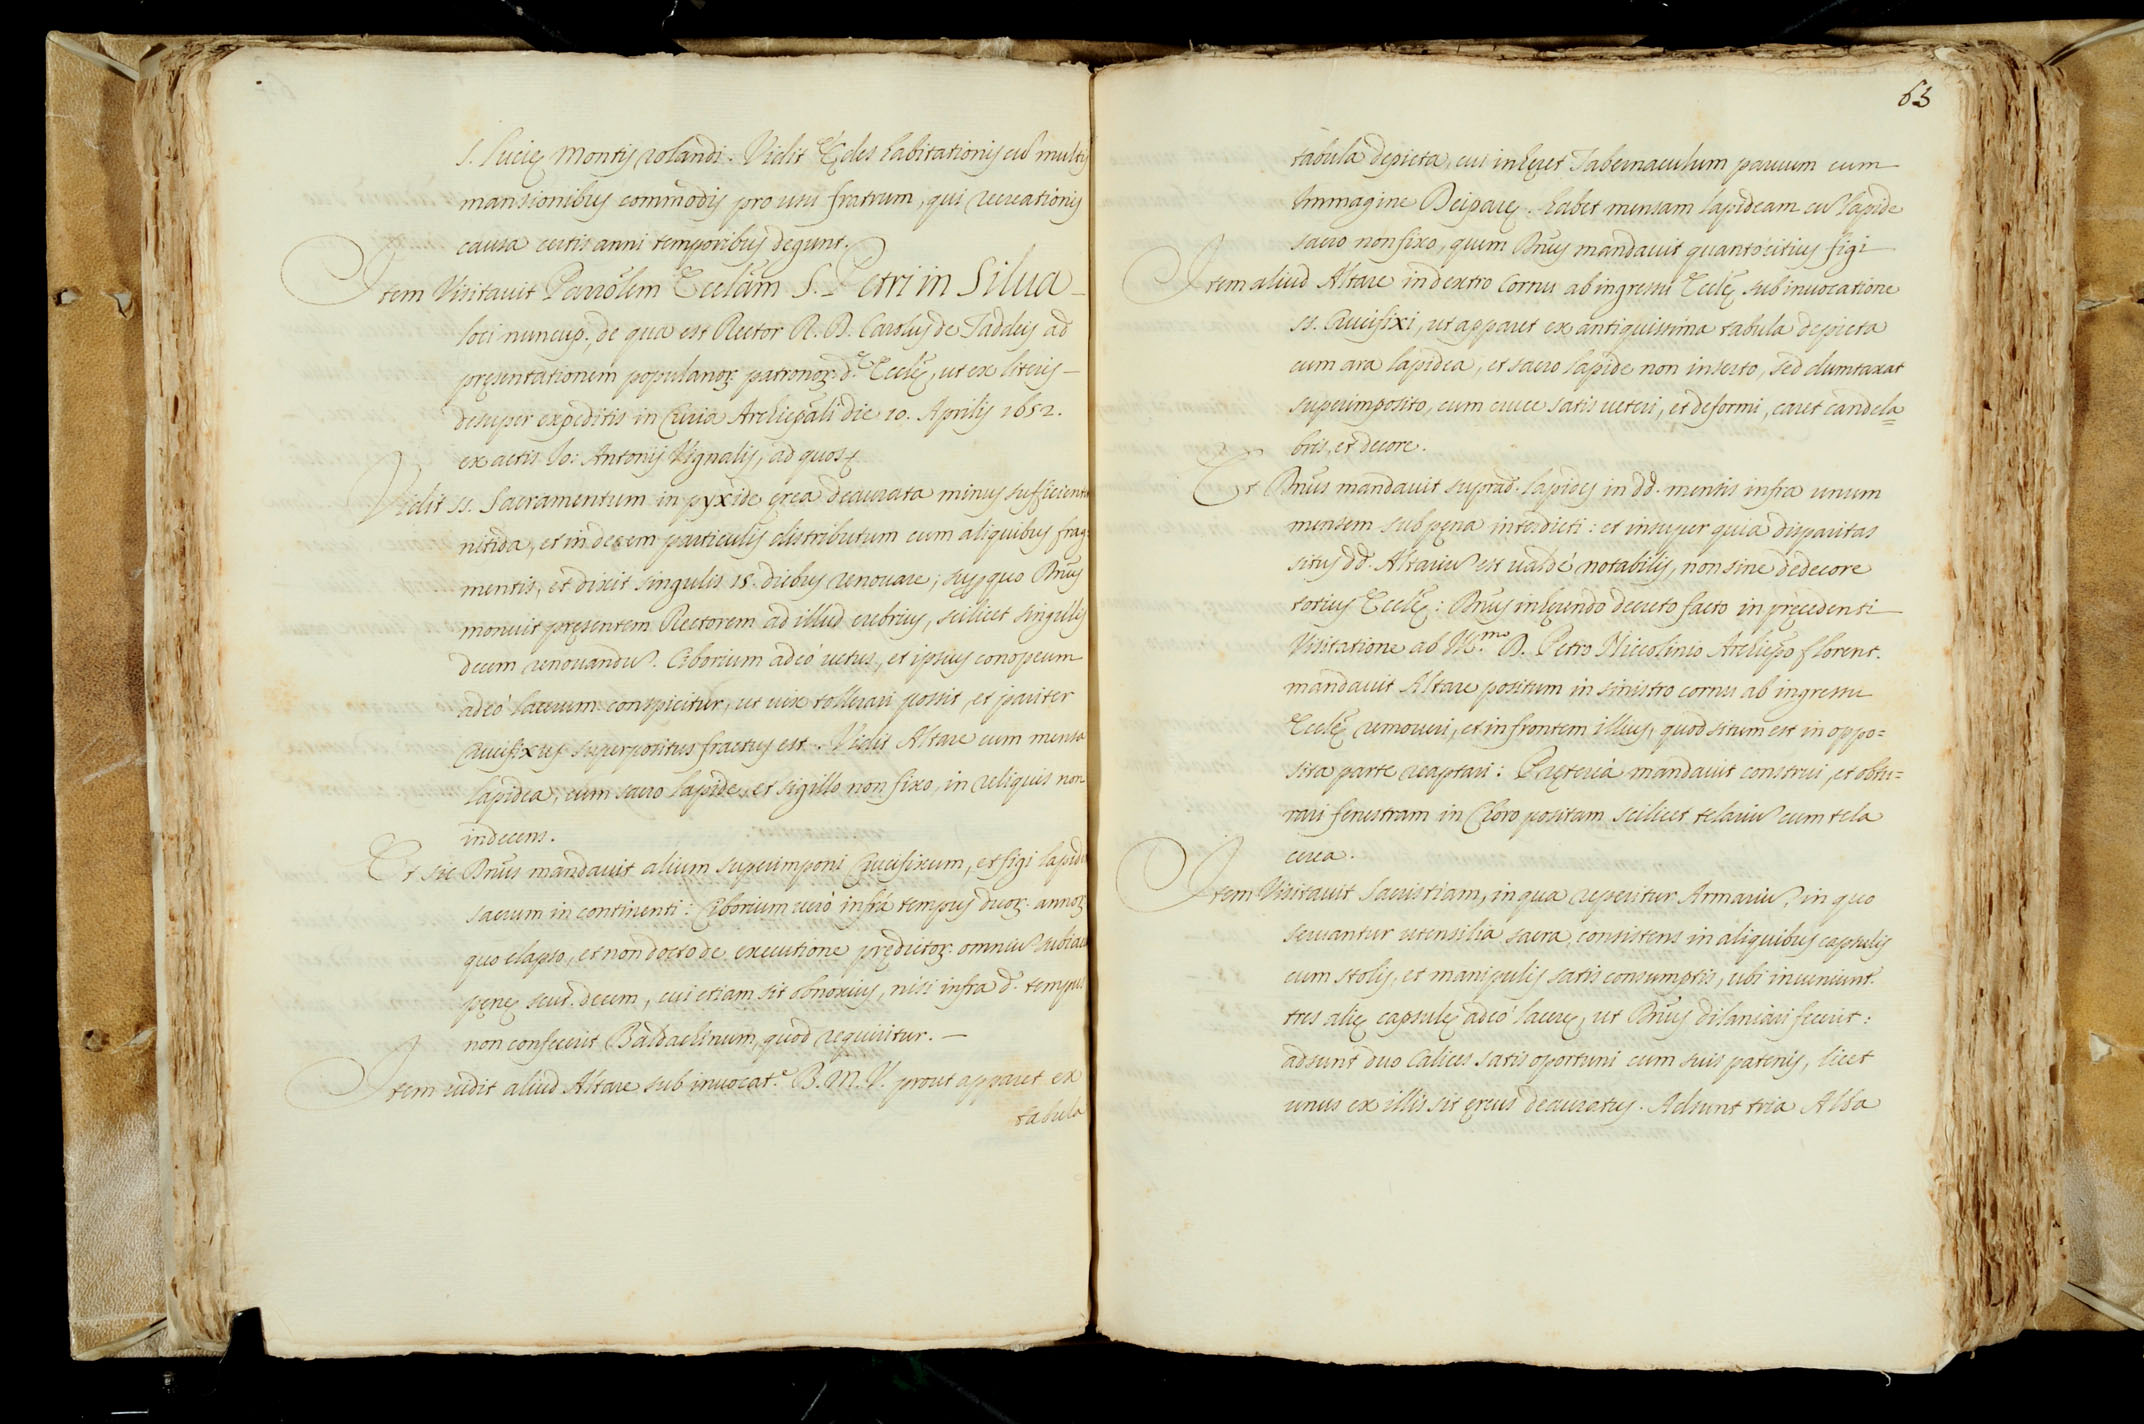 S. Lucię Montis rolandi. Vidit Ędes habitationis cũ multis
mansionibus commodis pro usu fratrum, qui recreationis
causa certis anni temporibus degunt.
Item Visitauit Parrõlem Ecclãm S. Petri in Silua
loci nuncup., de qua est Rector R. D. Carolus de Taddeis ad
pręsentationem populanoꝝ patronoꝝ d.ę Ecclę, ut ex literis
desuper expeditis in Curia Archiep̃ali die 10. Aprilis 1652.
ex actis Io: Antonij Vignalis, ad quos
Vidit SS. Sacramentum in pyxide ęrea deaurata minus sufficienter
nitida, et in decem particulis distributum cum aliquibus frag-
mentis, et dixit singulis 15. diebus renouare; sup quo Dñus
monuit pręsentem Rectorem ad illud crebrius, scilicet singulis
decem renouandũ. Ciborium adeò uetus, et ipsius conopeum
adeò lacerum conspicitur, ut uix tollerari possit, et pariter
Crucifixus superpositus fractus est. Vidit Altare cum mensa
lapidea, cum sacro lapide, et sigillo non fixo, in reliquis non
indecens.
Et sic Dñus mandauit alium superimponi Crucifixum, et figi lapidem
sacrum in continenti: Ciborium uerò infrà tempus duoꝝ annoꝝ
quo elapso, et non docto de executione prędictoꝝ omniũ subiaceat
pęnę scut. decem, cui etiam sit obnoxius, nisi infra d. tempus
non confecerit Baldachinum, quod requiritur.
Item uidit aliud Altare sub inuocat.e B. M. V. prout apparet ex
tabula
63
tabula depicta, cui inhęret Tabernaculum paruum cum
Immagine Deiparę. habet mensam lapideam cũ lapide
sacro non fixo, quem Dñus mandauit quantocitius figi
Item aliud Altare in dextro Cornu ab ingressu Ecclę sub inuocatione
SS. Crucifixi, ut apparet ex antiquissima tabula depicta
cum ara lapidea, et sacro lapide non inserto, sed dumtaxat
superimposito, cum cruce satis ueteri, et deformi, caret candela=
bris, et decore.
Et Dñus mandauit suprad. lapides in dd. mensis infra unum
mensem sub pęna interdicti: et insuper quia disparitas
situs dd. Altariũ est ualdè notabilis, non sine dedecore
totius Ecclę: Dñus inhęrendo decreto facto in pręcedenti
Visitatione ab Ill.mo D. Petro Niccolinio Archiep̃o florent.
mandauit Altare positum in sinistro cornu ab ingressu
Ecclę remoueri, et in frontem illius, quod situm est in oppo=
sita parte reaptari: Pręterea mandauit construi, et obtu=
rari fenestram in Choro positam scilicet telariũ cum tela
cerea.
Item Visitauit Sacristiam, in qua reperitur Armariũ, in quo
seruantur utensilia sacra, consistens in aliquibus capsulis
cum stolis, et manipulis satis consumptis, ubi inueniunt.
tres alię capsulę adeò lacerę, ut Dñus dilaniari fecerit:
adsunt duo Calices satis oportuni cum suis patenis, licet
unus ex illis sit ęreus deauratus. Adsunt tria Alba